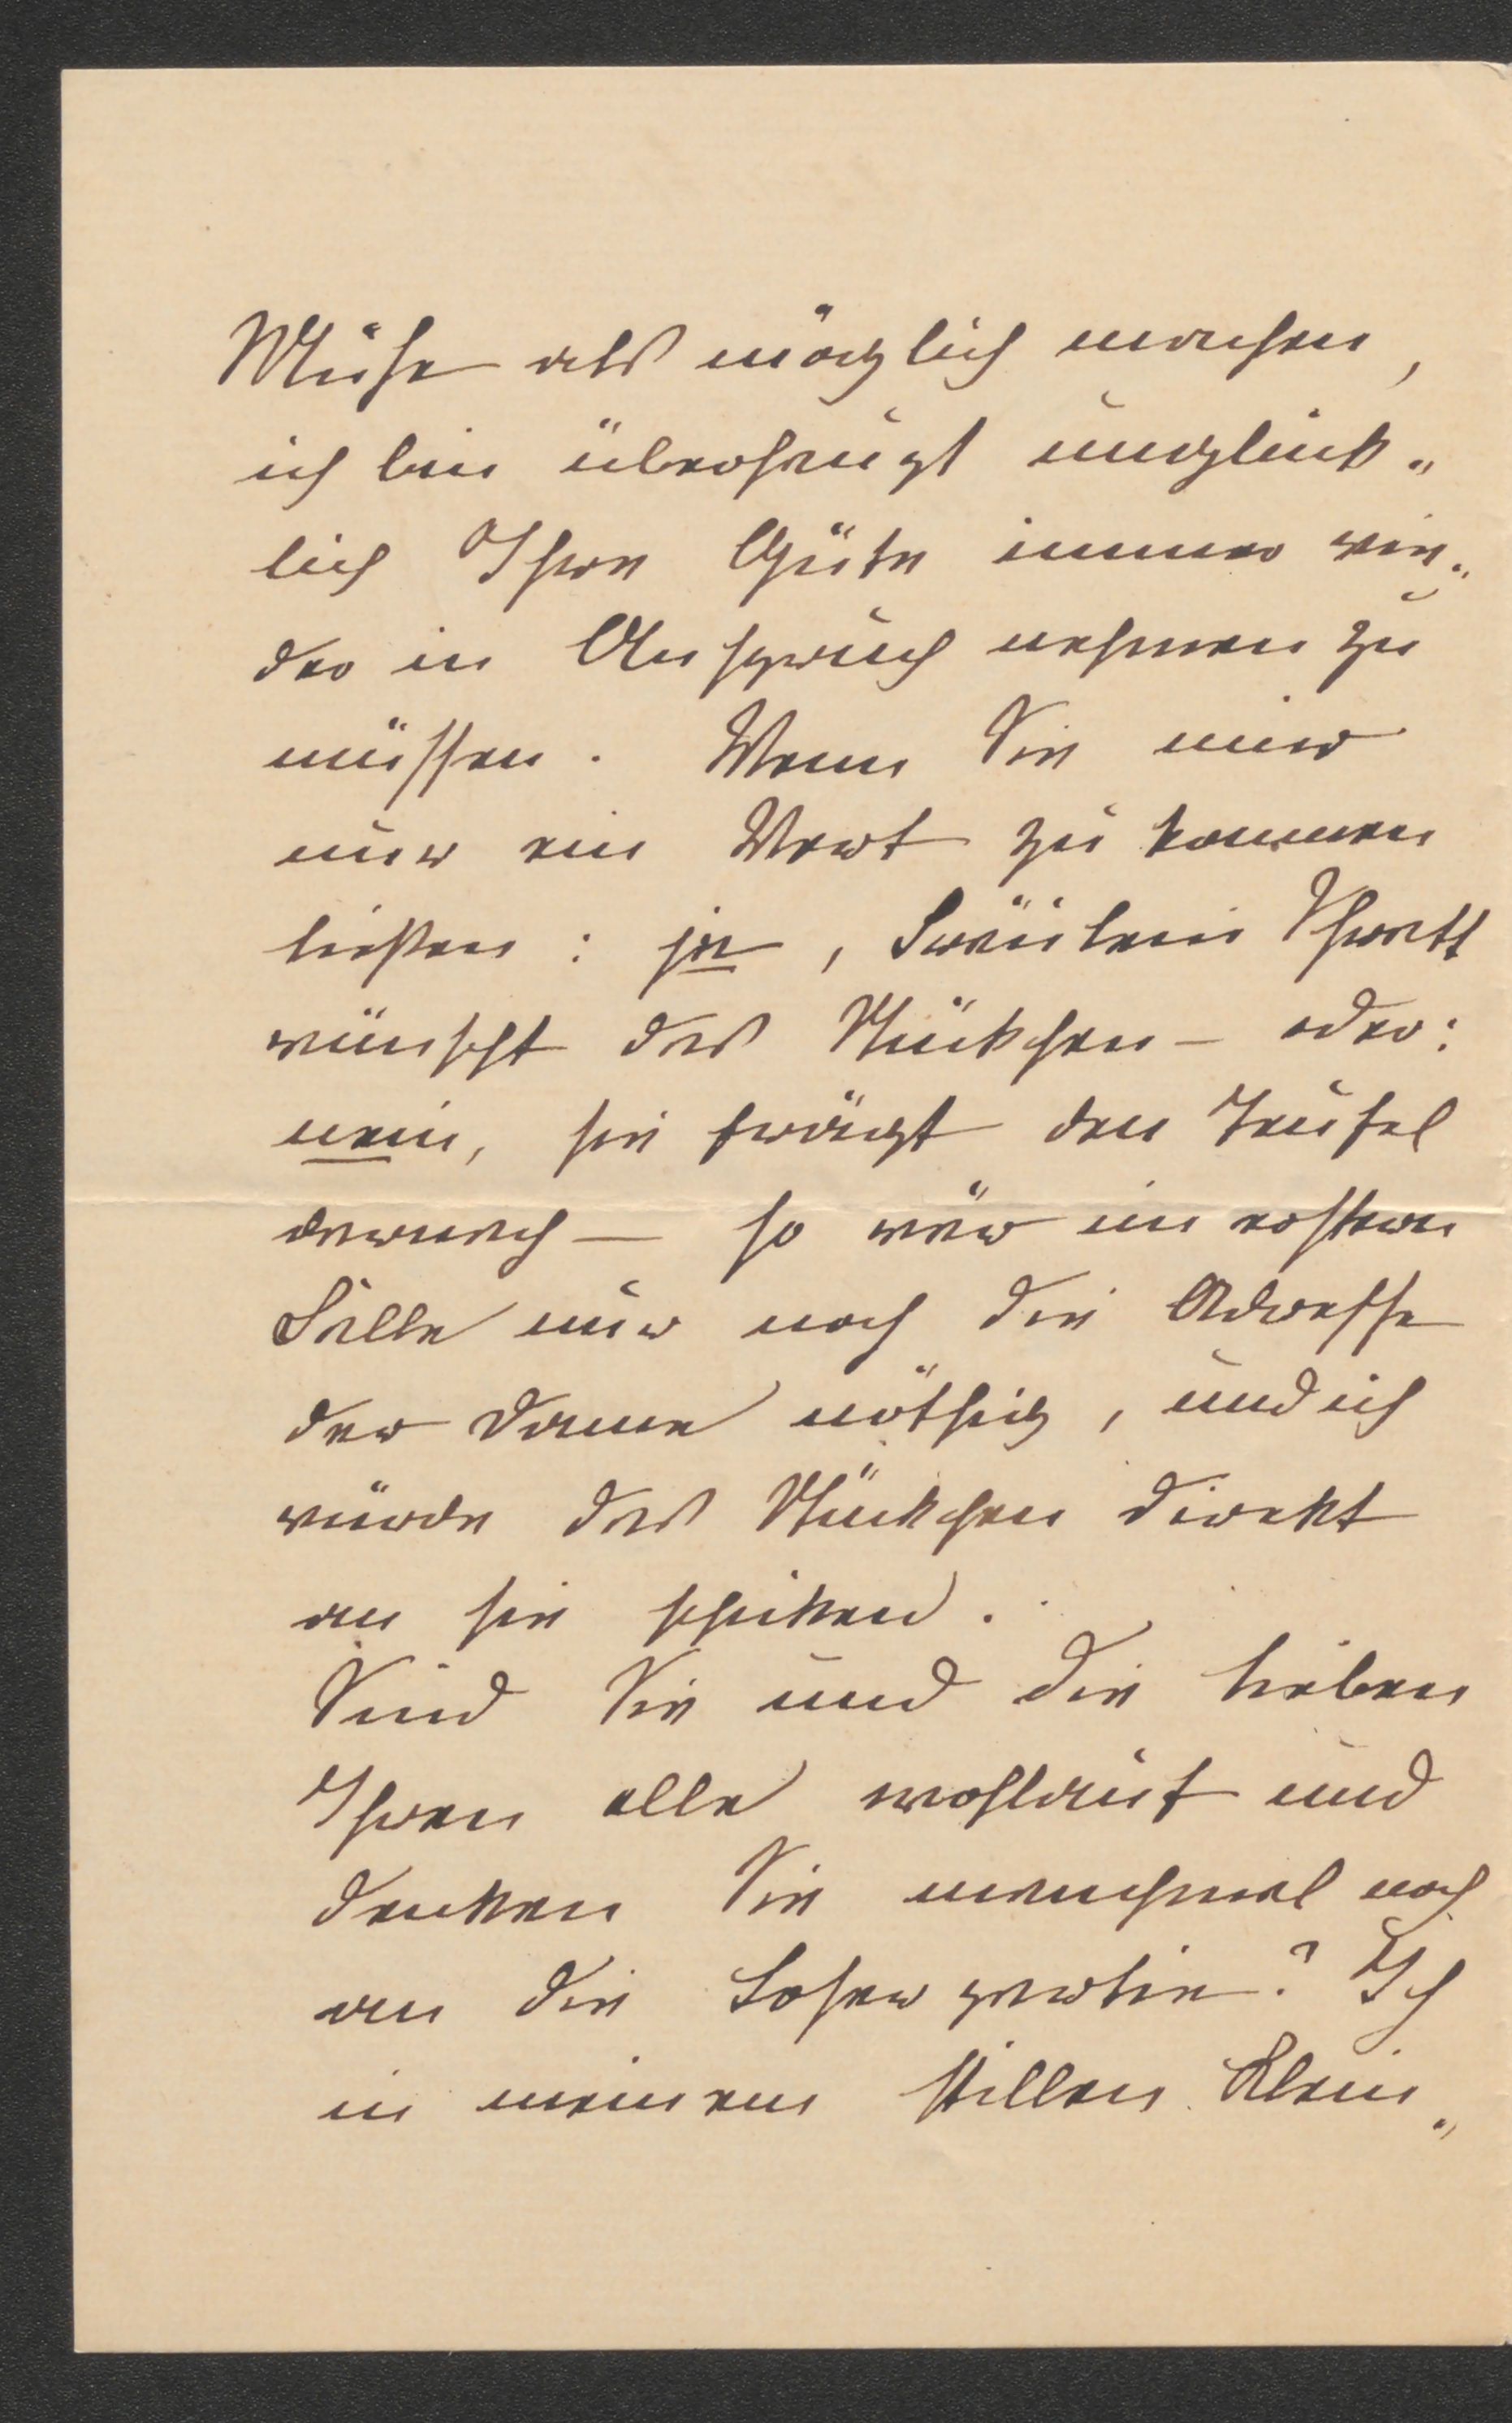 Mühe als möglich machen,
ich bin überhaupt unglück„
lich Ihre Güte immer wie„
der in Anspruch nehmen zu
müssen. Wenn Sie mir
nur ein Wort zu kommen
ließen: ja, Fräulein
wünscht das Stückchen – oder:
nein, sie frägt den Teufel
darnach — so wär im erstern
Falle nur noch die Adresse
der Dame nöthig, und ich
würde das Stückchen direkt
an sie schiken.
Sind Sie und die lieben
Ihren alle wohlauf und
denken Sie manchmal noch
an die? Ich
in meinem stillen Klein„